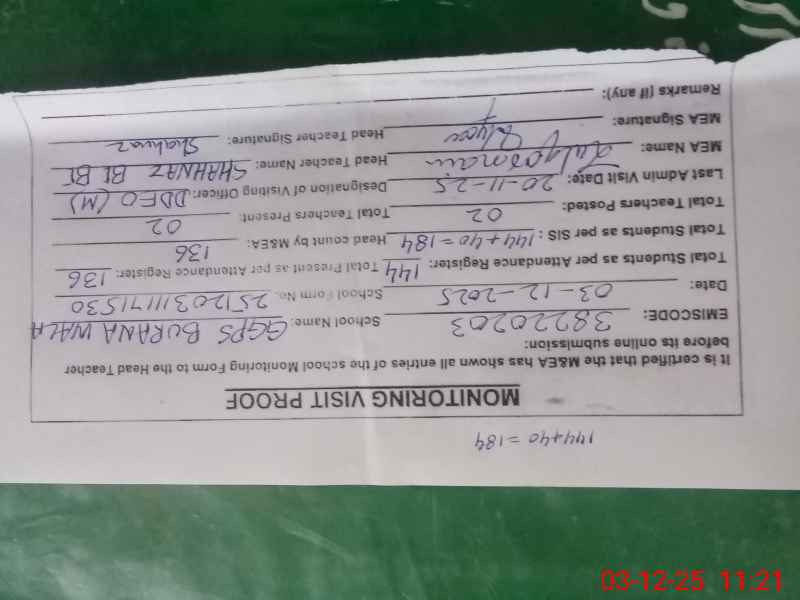 144+40=184
MONITORING VISIT PROOF
It is certified that the M&EA has shown all entries of the school Monitoring Form to the Head Teacher
before its online submission:
EMISCODE: 38220203 School Name: GGPS BURANA WALA
Date: 03-12-2025 School Form No. 25120311171530
Total Students as per Attendance Register: 144 Total Present as per Attendance Register: 136
Total Students as per SIS: 144+40=184 Head count by M&EA: 136
Total Teachers Posted: 02 Total Teachers Present: 02
Last Admin Visit Date: 20-11-25 Designation of Visiting Officer: DDEO (M)
MEA Name: Head Teacher Name: SHAHNAZ BI BI
MEA Signature: Head Teacher Signature: Shahnaz
Remarks (if any):
03-12-25 11:21